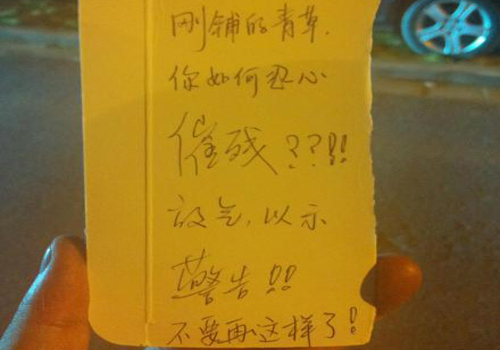 刚铺的青草，
你如何忍心
催残？？！！
放气，以示
警告！！
不要再这样了！